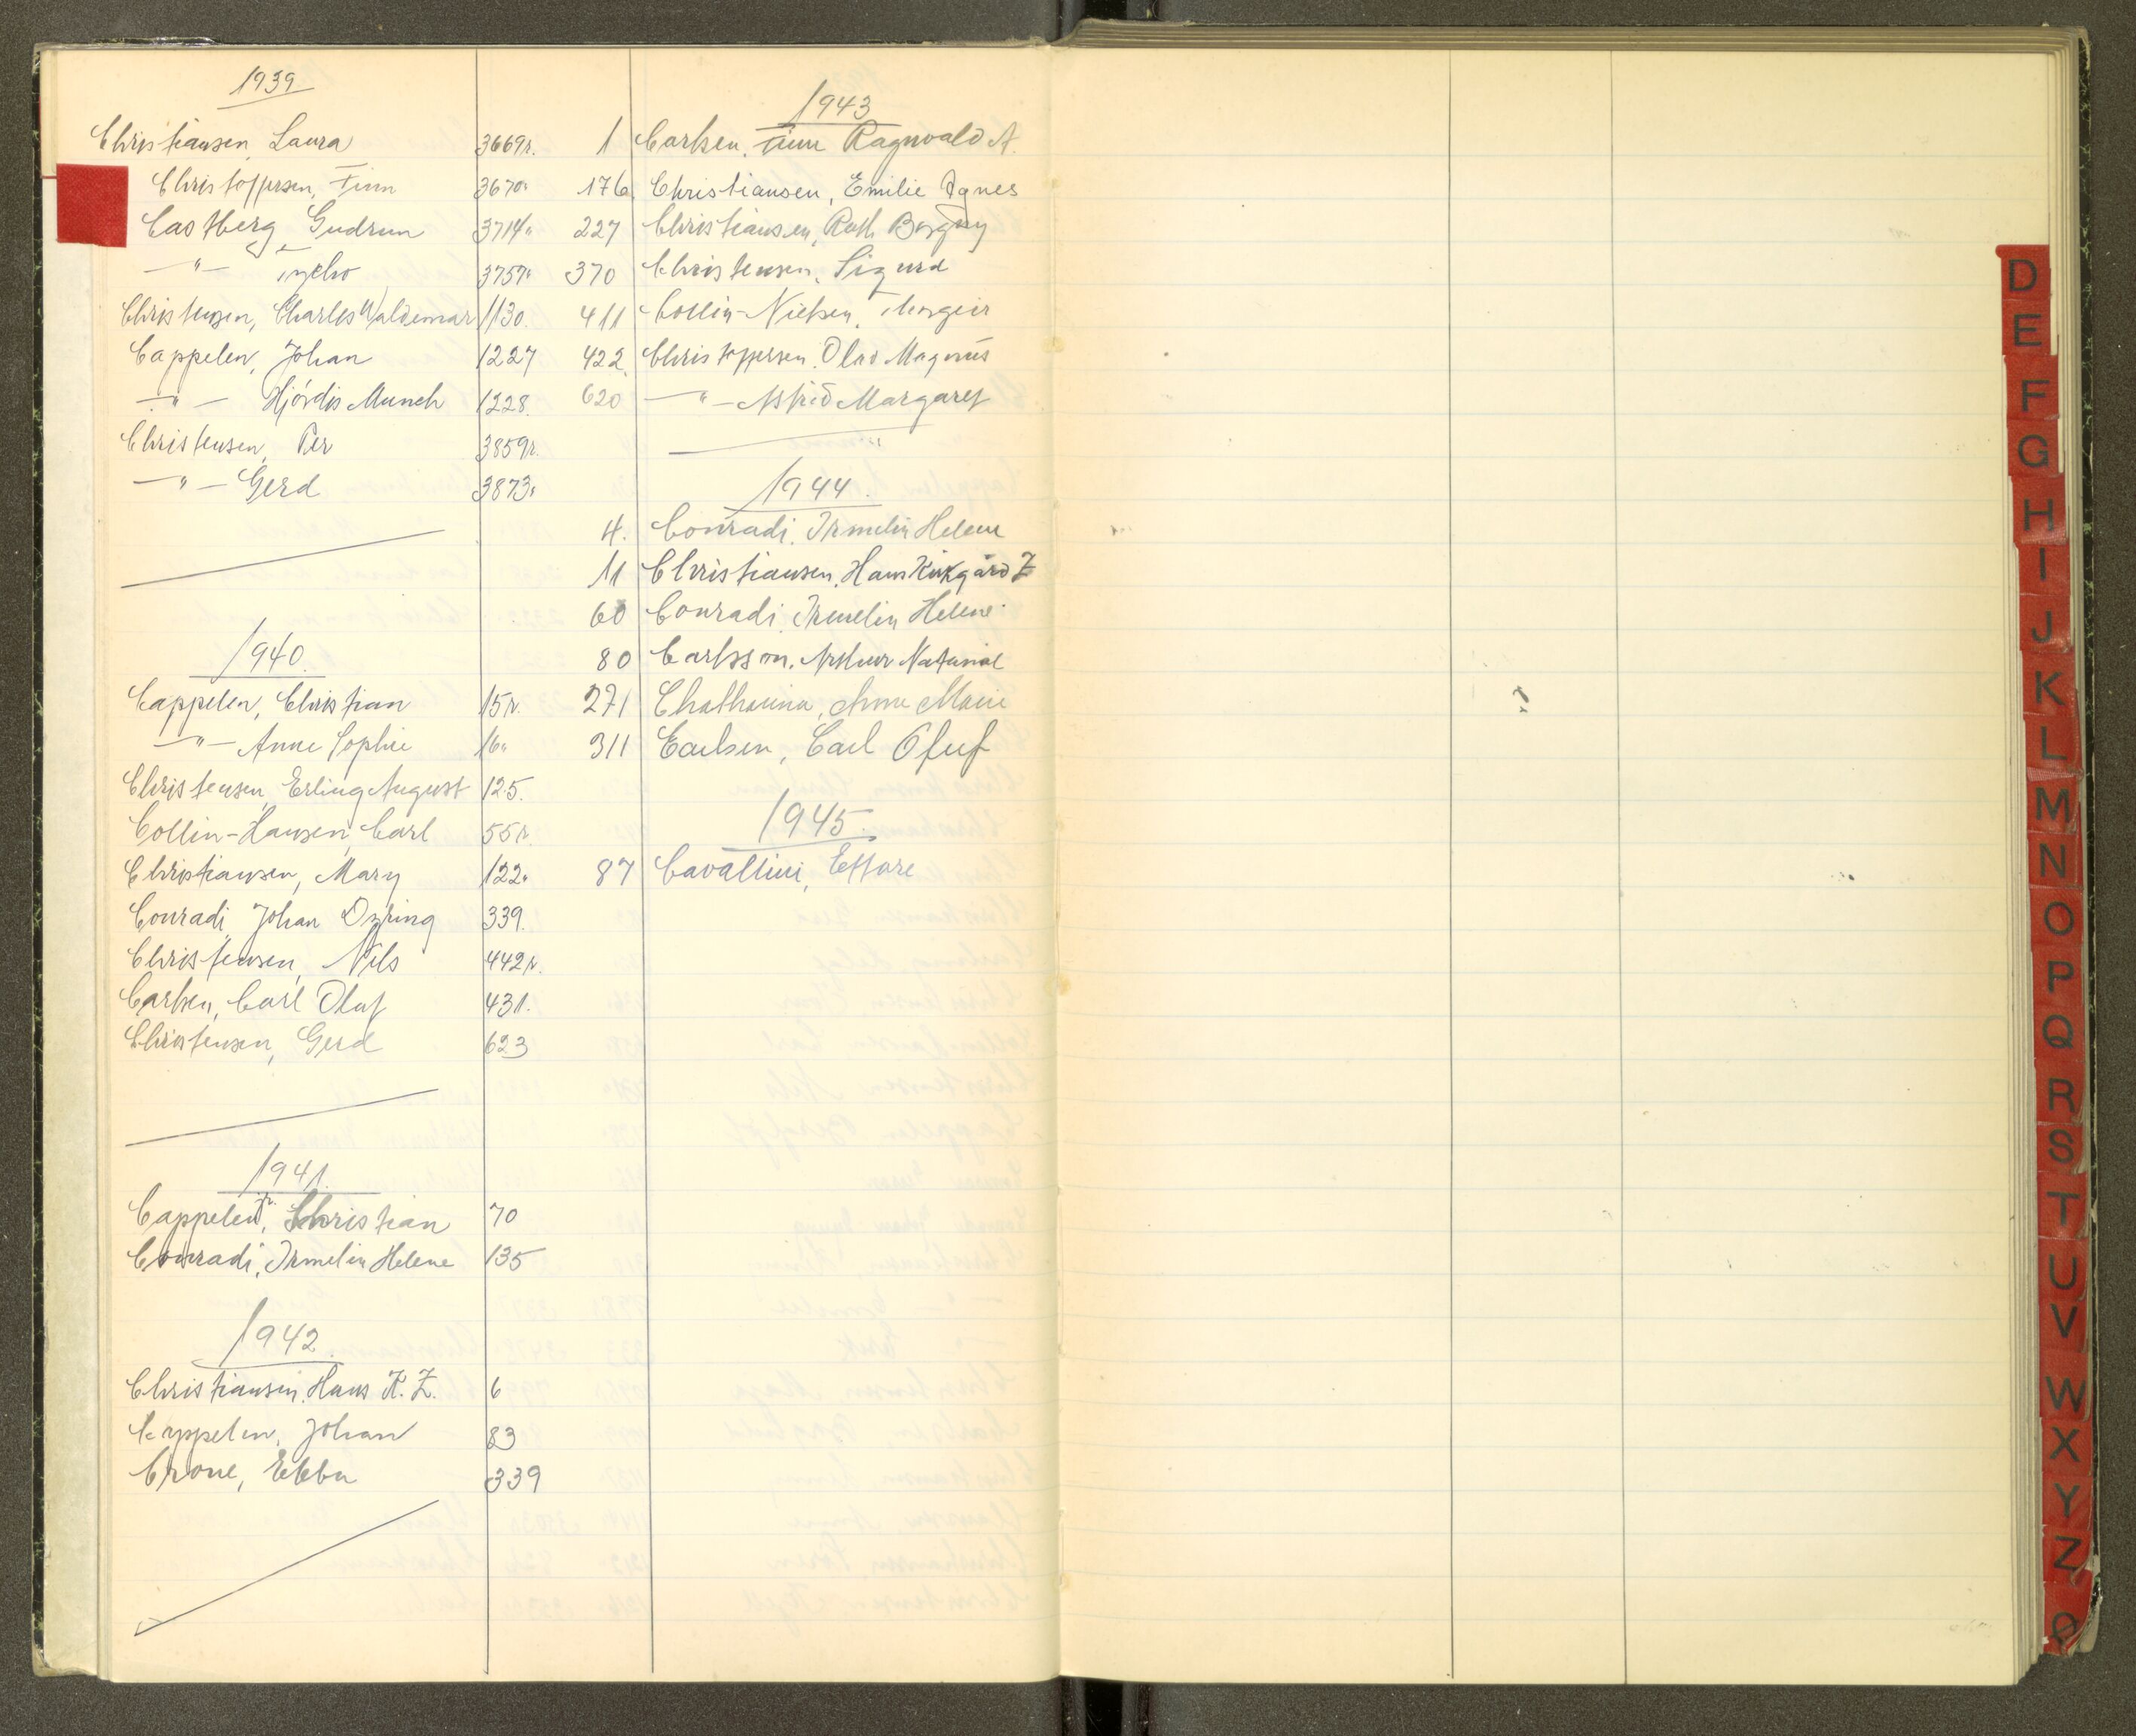 1939
Christiansen, Laura 3669r.
Christoffersen, Finn 3670"
Castberg, Gudrun 3714"
—"— Tycho 3757"
Christensen, Charles Waldemar 1130.
Cappelen, Johan 1227
—"— Hjördis Munch 1228.
Christensen, Per 3859r.
—"— Gerd 3873"
1940.
Cappelen, Christian 15r.
—"— Anne Sophie 16"
Christensen, Erling August 125.
Collin-Hansen, Carl 55r.
Christiansen, Mary 122"
Conradi, Johan 339.
Christensen, Nils 442r.
Carlsen, Carl Olaf 431.
Christensen, Gerd 623
1941.
Cappelen jr., Christian 70
Conradi, Irmelin Helene 135
1942.
Christiansen, Hans K. Z. 6
Cappelen, Johan 83
Crone, Ebba 339
1943
1 Carlsen, Finn Ragnvald A.
176 Christiansen, Emilie Agnes
227 Christiansen, Ruth Borgny
370 Christensen, Sigurd
411 Collin-Nielsen, Thorgeir
422. Christoffersen, Olav Magnus
620 —"— Astrid Margaret
1944.
4. Conradi, Irmelin Helene
11 Christiansen, Hans Kirkgård Z
60 Conradi, Irmelin Helene
80 Carlsson, Arthur Nataniel
271 Chatharina, Anne Marie
311 Carlsen, Carl Oluf
1945.
87 Cavallini, Ettore
D
E
F
G
H
I
J
K
L
M
N
O
P
Q
R
S
T
U
V
W
X
Y
Z
Ø